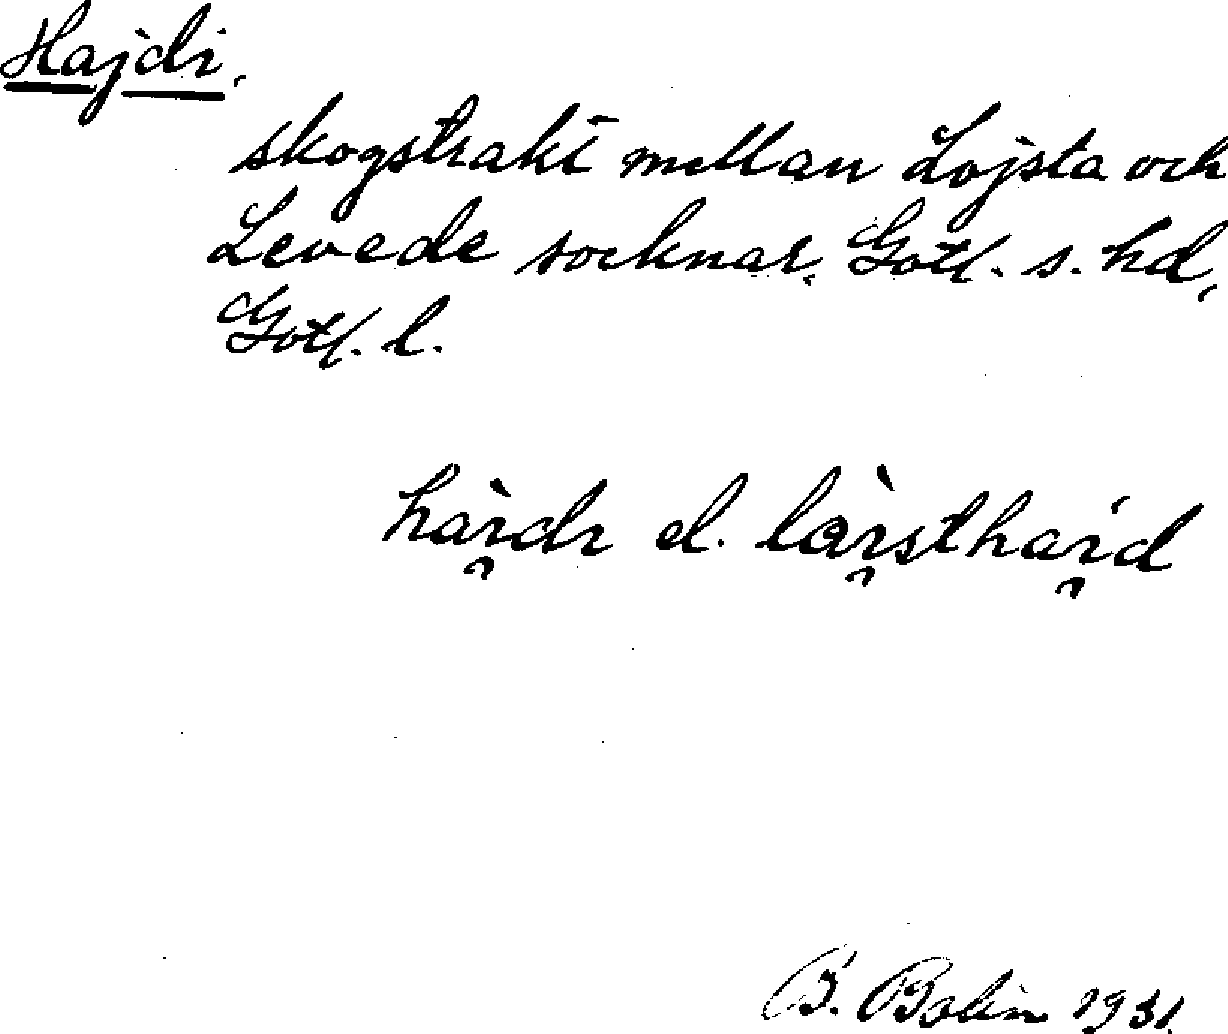 Hajdi.
skogstrakt mellan Lojsta och
Levede socknar, Gotl. s. hd,
Gotl. l.
hàı̯dı el. làı̯sthaı̯́d
B. Bolin 1931.